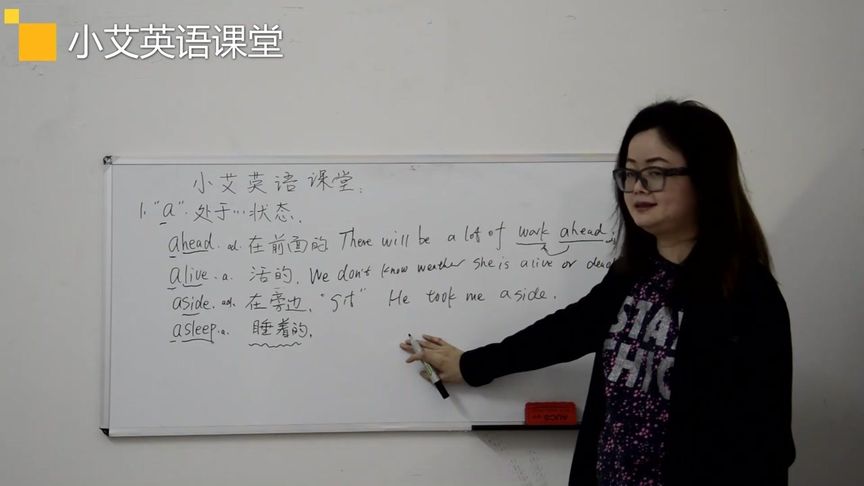 小艾英语课堂
小艾英语课堂:
1. "a". 处于…状态.
ahead. ad. 在前面的 There will be a lot of work ahead.
alive. a. 活的. We don't know weather she is alive or dead
aside. ad. 在旁边. He took me aside.
asleep. a. 睡着的.
STAY
CHIC